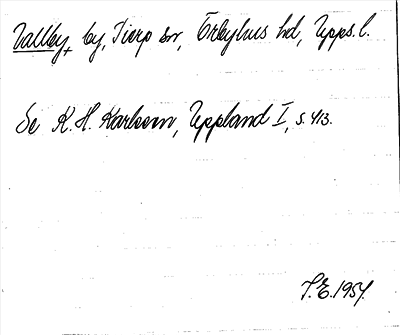 Vallby, by, Tierp sn, Örbyhus hd, Upps. l.
Se K. H. Karlsson, Uppland I, s. 413.
T.E. 1954.